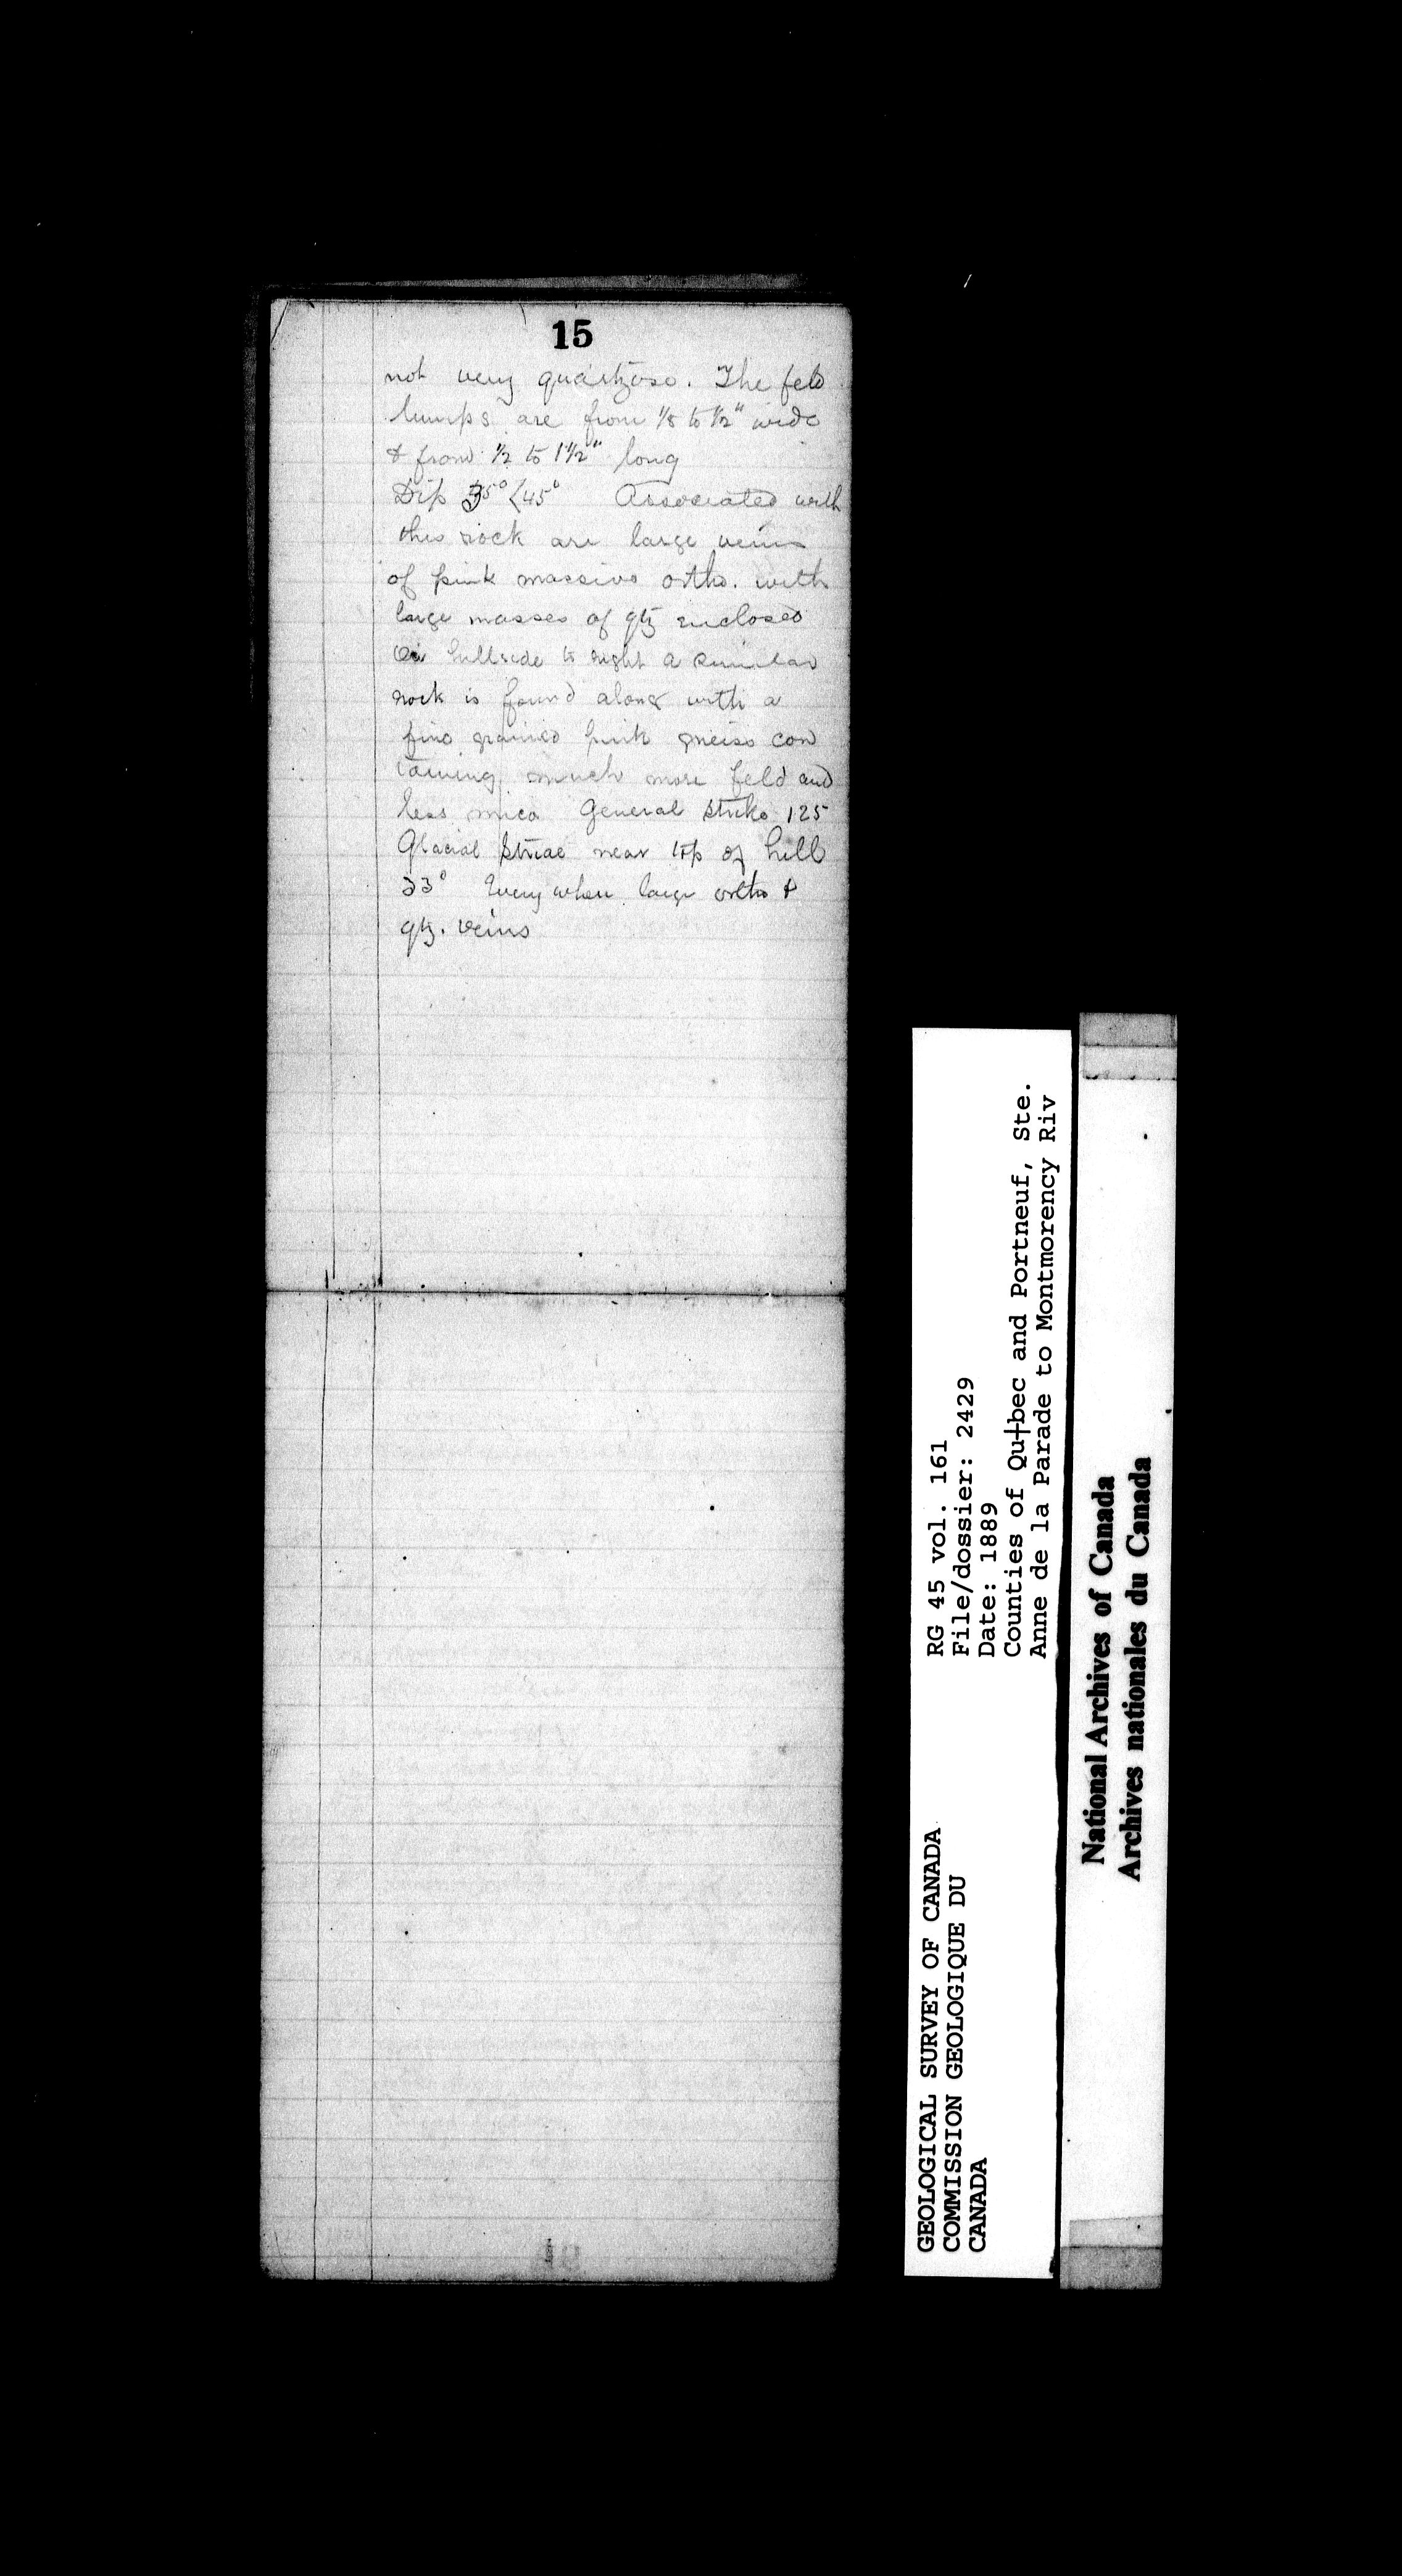 15
not very quartzose. The feld
lumps are from 1/8 to 1/2" wide
& from 1/2 to 1 1/2" long
Dip 35° <45° Associated with
this rock are large veins
of pink massive ortho. with
large masses of qtz enclosed
On hillside to right a similar
rock is found along with a
fine grained pink gneiss con
taining much more feld and
less mica General strike 125
Glacial striae near top of hill
33° Everywhere large ortho &
qtz. veins
RG 45 vol. 161
File/dossier: 2429
Date: 1889
Counties of Qu†bec and Portneuf, Ste.
Anne de la Parade to Montmorency Riv
GEOLOGICAL SURVEY OF CANADA
COMMISSION GEOLOGIQUE DU
CANADA
National Archives of Canada
Archives nationales du Canada